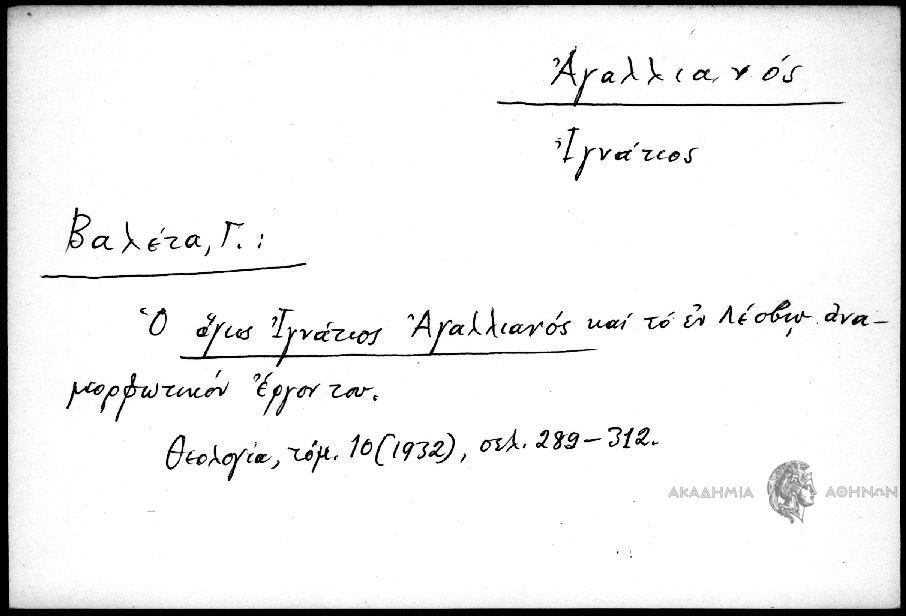 Ἀγαλλιανός
Ἰγνάτιος
Βαλέτα, Γ. :
Ὁ ἅγιος Ἰγνάτιος Ἀγαλλιανός καί τό ἐν Λέσβῳ ἀνα-
μορφωτικόν ἔργον του.
Θεολογία, τόμ. 10 (1932), σελ. 289-312.
ΑΚΑΔΗΜΙΑ ΑΘΗΝΩΝ